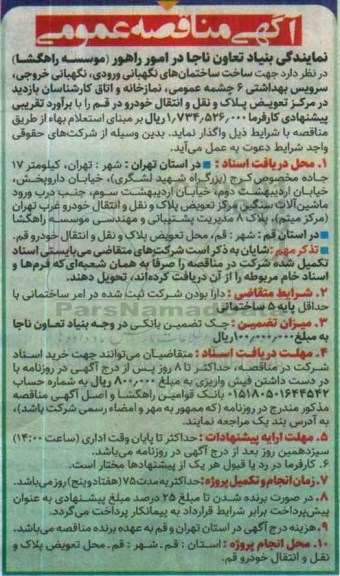 آگهی مناقصه عمومی
نمایندگی بنیاد تعاون ناجا در امور راهور (موسسه راهگشا)
در نظر دارد جهت ساخت ساختمان‌های نگهبانی ورودی، نگهبانی خروجی،
سرویس بهداشتی ۶ چشمه عمومی، نمازخانه و اتاق کارشناسان بازدید
در مرکز تعویض پلاک و نقل و انتقال خودرو در قم را با برآورد تقریبی
پیشنهادی کارفرما ۱,۷۳۴,۵۲۶,۰۰۰ ریال بر مبنای استعلام بهاء از طریق
مناقصه با شرایط ذیل واگذار نماید. بدین وسیله از شرکت‌های حقوقی
واجد شرایط دعوت به عمل می‌آید.
۱. محل دریافت اسناد : ■ در استان تهران : شهر : تهران، کیلومتر ۱۷
جاده مخصوص کرج (بزرگراه شهید لشگری)، خیابان داروپخش،
خیابان اردیبهشت دوم، خیابان اردیبهشت سوم، جنب درب ورود
ماشین‌آلات سنگین مرکز تعویض پلاک و نقل و انتقال خودرو غرب تهران
(مرکز میثم)، پلاک ۸ مدیریت پشتیبانی و مهندسی موسسه راهگشا
■ در استان قم : شهر : قم، محل تعویض پلاک و نقل و انتقال خودرو قم.
■ تذکر مهم : شایان به ذکر است شرکت‌های متقاضی می‌بایستی اسناد
تکمیل شده شرکت در مناقصه را صرفا به همان شعبه‌ای که فرم‌ها و
اسناد خام مربوطه را از آن دریافت کرده‌اند، تحویل دهند.
۲. شرایط متقاضی : دارا بودن شرکت ثبت شده در امر ساختمانی با
حداقل پایه ۵ ساختمانی
۳. میزان تضمین : چک تضمین بانکی در وجه بنیاد تعاون ناجا
به مبلغ ۱۰۰,۰۰۰,۰۰۰ ریال
۴. مهلت دریافت اسناد : متقاضیان می‌توانند جهت خرید اسناد
شرکت در مناقصه، حداکثر تا ۸ روز پس از درج آگهی در روزنامه با
در دست داشتن فیش واریزی به مبلغ ۸۰۰,۰۰۰ ریال به شماره حساب
۰۱۵۱۸۰۵۰۱۶۴۴۵۴۲ بانک قوامین راهگشا و اصل آگهی مناقصه
مذکور مندرج در روزنامه (که ممهور به مهر و امضاء رسمی شرکت باشد)،
به آدرس بند یک مراجعه نمایند.
۵. مهلت ارایه پیشنهادات : حداکثر تا پایان وقت اداری (ساعت ۱۴:۰۰)
سیزدهمین روز بعد از درج آگهی در روزنامه می‌باشد.
۶. کارفرما در رد یا قبول هر یک از پیشنهادها مختار است.
۷. زمان انجام و تکمیل پروژه : حداکثر به مدت ۷۵ (هفتاد و پنج) روز می‌باشد.
۸. در صورت برنده شدن تا مبلغ ۲۵ درصد مبلغ پیشنهادی به عنوان
پیش‌پرداخت برابر شرایط قرارداد به پیمانکار پرداخت می‌گردد.
۹. هزینه درج آگهی در استان تهران و قم به عهده برنده مناقصه می‌باشد.
۱۰. محل انجام پروژه : استان : قم. شهر : قم. محل تعویض پلاک و
نقل و انتقال خودرو قم.